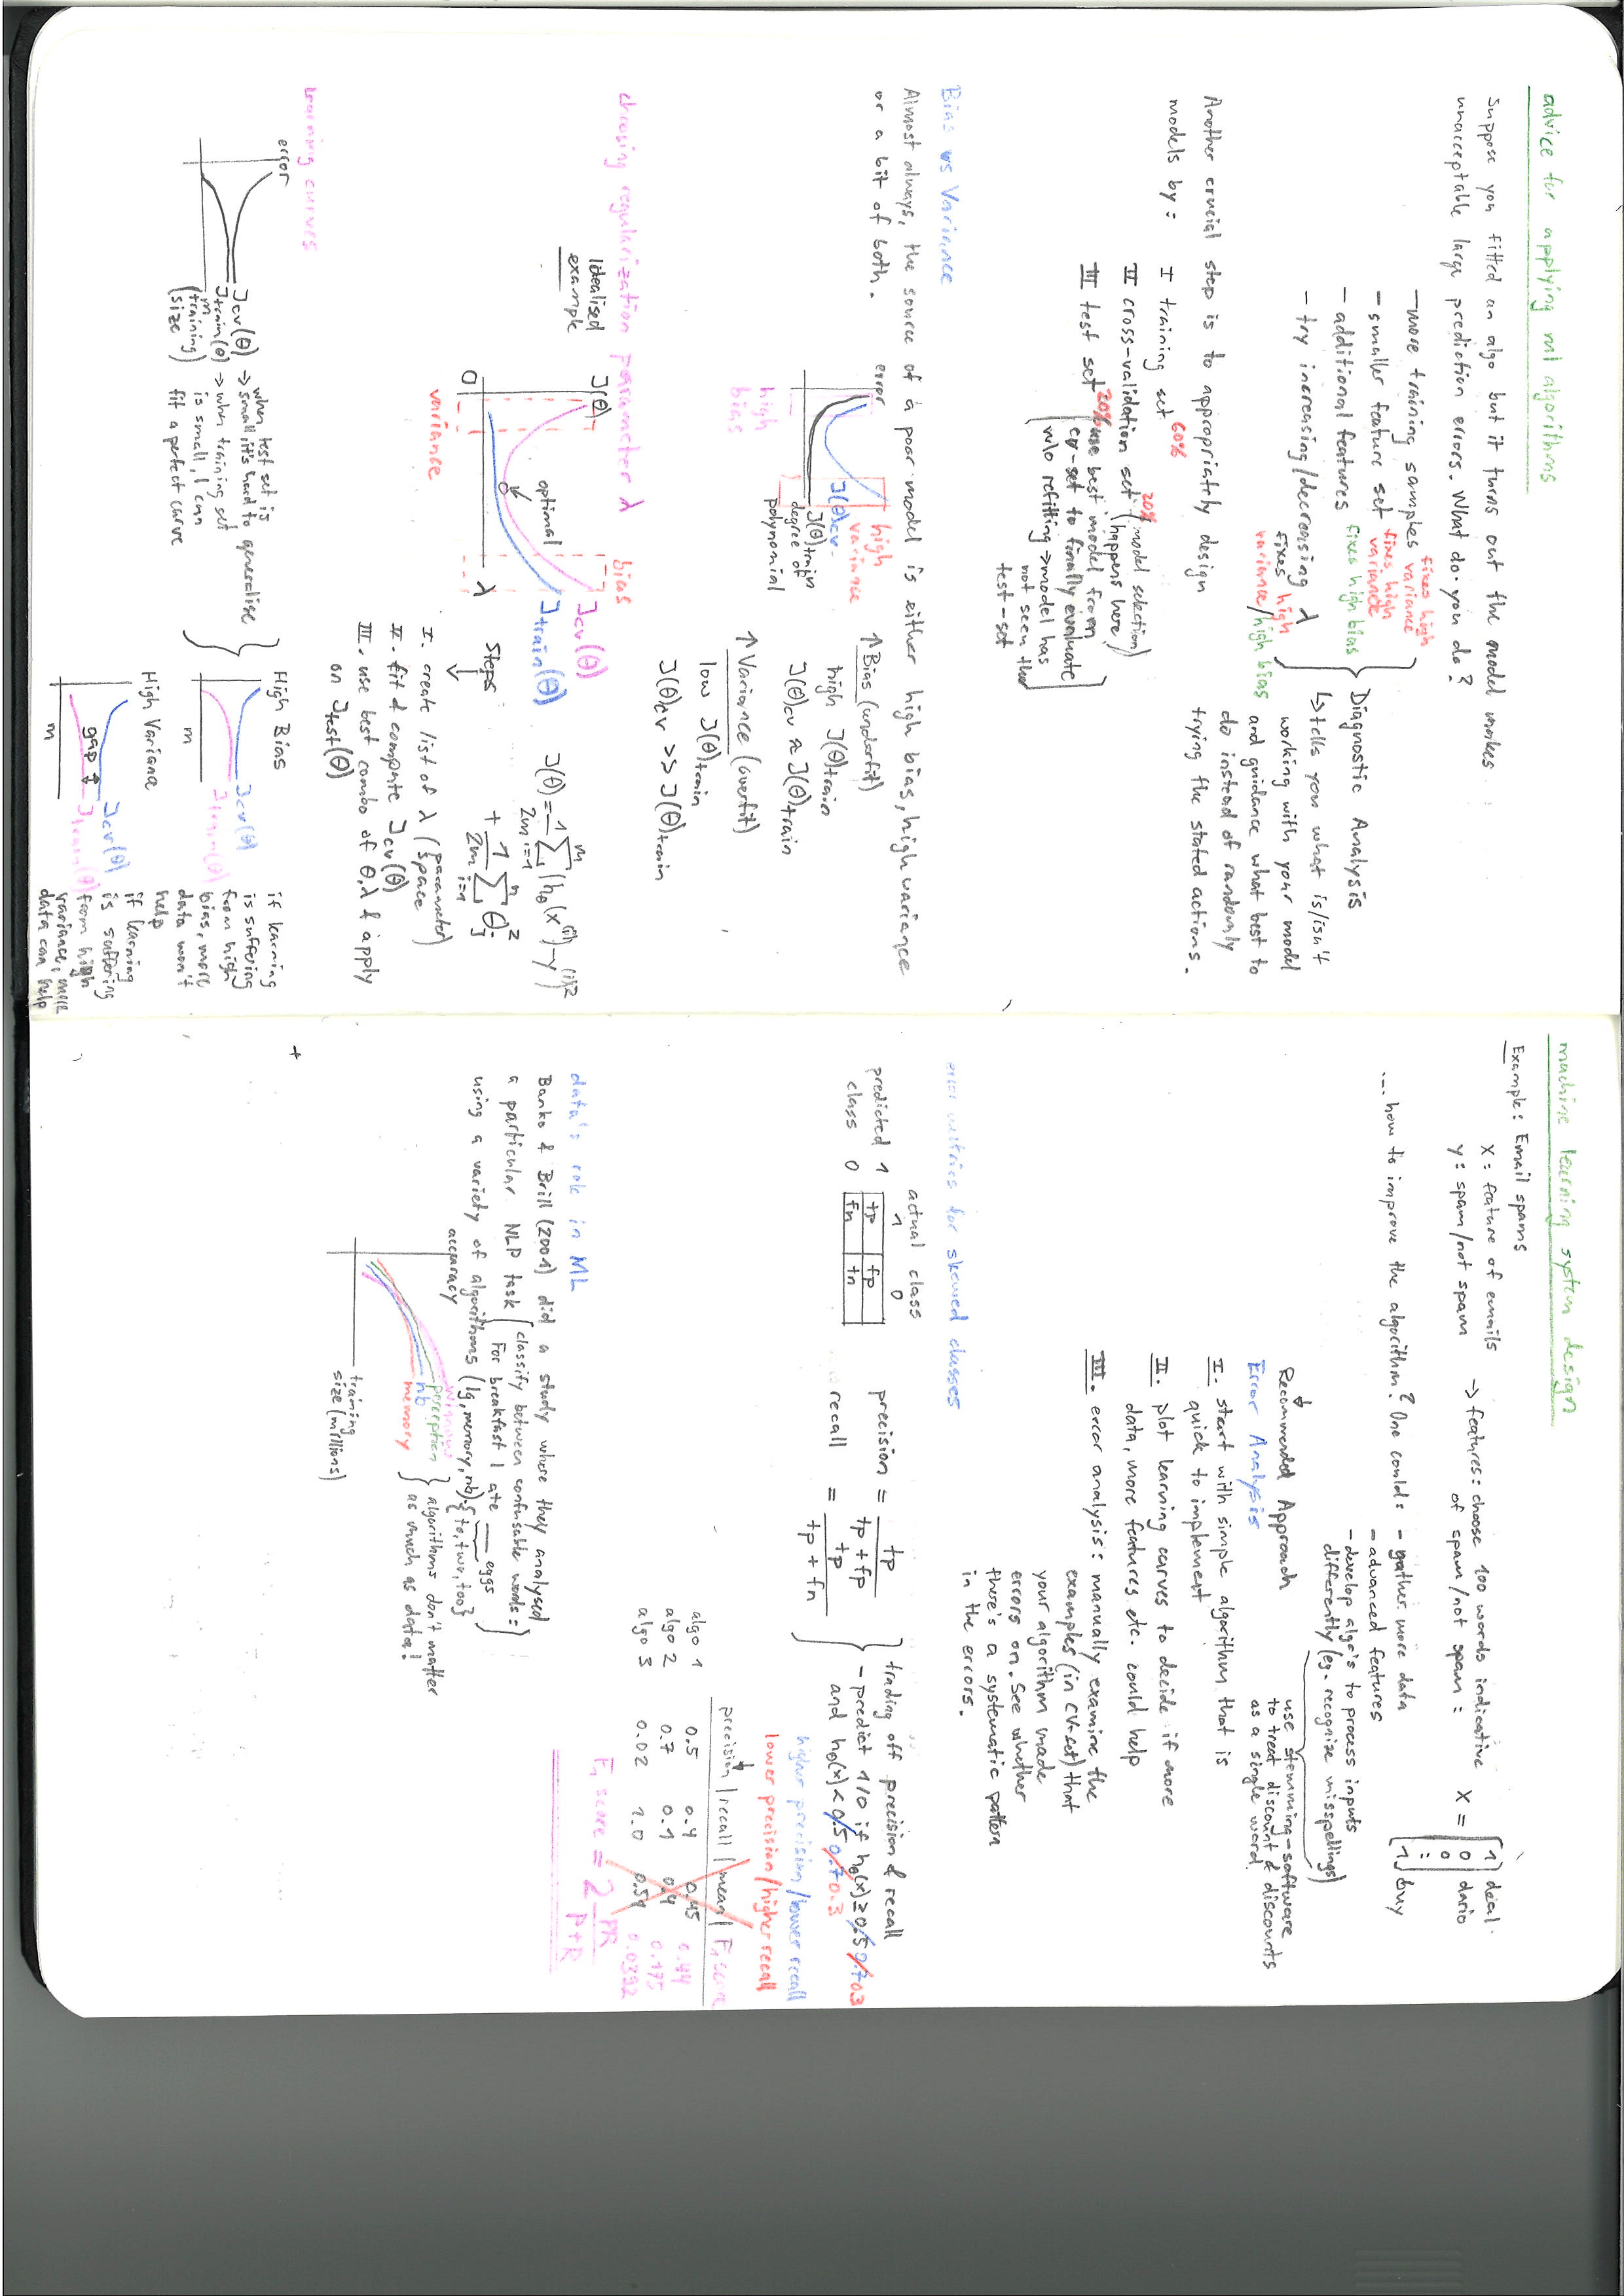 advice for applying ml algorithms
Suppose you fitted an algo but it turns out the model makes
unacceptable large prediction errors. What do you do?
- more training samples fixes high variance
- smaller feature set fixes high variance
- additional features fixes high bias
- try increasing/decreasing λ
fixes high
variance/high bias
Diagnostic Analysis
↳ tells you what is/isn't
working with your model
and guidance what best to
do instead of randomly
trying the stated actions.
Another crucial step is to appropriately design
models by:
I training set 60%
II cross-validation set 20% (model selection
happens here)
III test set 20% [use best model from
cv-set to finally evaluate
w/o refitting → model has
not seen the
test-set]
Bias vs Variance
Almost always, the source of a poor model is either high bias, high variance
or a bit of both.
error
high
variance
J(θ)cv
J(θ)train
degree of
polynomial
high
bias
↑ Bias (underfit)
high J(θ)train
J(θ)cv ≈ J(θ)train
↑ Variance (overfit)
low J(θ)train
J(θ)cv >> J(θ)train
choosing regularization parameter λ
Idealised
example
J(θ)
bias
Jcv(θ)
Jtrain(θ)
optimal
λ
0
variance
J(θ) = 1/2m Σ i=1 m (hθ(x(i)) - y(i))2
+ 1/2m Σ i=1 n θj2
Steps
↓
I. create list of λ (parameter space)
II. fit & compute Jcv(θ)
III. use best combo of θ,λ & apply
on Jtest(θ)
learning curves
error
Jcv(θ) → when test set is
small, it's hard to generalise
Jtrain(θ) → when training set
is small, I can
fit a perfect curve
m
(training
size)
High Bias
Jcv(θ)
Jtrain(θ)
m
if learning
is suffering
from high
bias, more
data won't
help
High Variance
Jcv(θ)
gap ↕
Jtrain(θ)
m
if learning
is suffering
from high
variance, more
data can help
machine learning system design
Example: Email spams
X: feature of emails
y: spam/not spam
→ features: choose 100 words indicative
of spam/not spam:
X = [1 0 0 : 1]
deal
dario
buy
.... how to improve the algorithm? One could: - gather more data
- advanced features
- develop algo's to process inputs
differently (eg. recognize misspellings)
use stemming-software
to treat discount & discounts
as a single word.
↓
Recommended Approach
Error Analysis
I. start with simple algorithm that is
quick to implement
II. plot learning curves to decide if more
data, more features etc. could help
III. error analysis: manually examine the
examples (in CV-set) that
your algorithm made
errors on. See whether
there's a systematic pattern
in the errors.
error metrics for skewed classes
actual class
1 0
predicted 1 tp fp
class 0 fn tn
precision = tp / tp + fp
recall = tp / tp + fn
trading off precision & recall
- predict 1/0 if hθ(x) ≥ 0.5 0.7 0.3
and hθ(x) < 0.5 0.7 0.3
higher precision/lower recall
lower precision/higher recall
↓
precision | recall | mean | F1 score
algo 1 0.5 0.4 0.45 0.44
algo 2 0.7 0.1 0.4 0.175
algo 3 0.02 1.0 0.51 0.0392
F1 score = 2 PR / P+R
data's role in ML
Banko & Brill (2001) did a study where they analysed
a particular NLP task [classify between confusable words:
For breakfast I ate ___ eggs]
{to, two, too}
using a variety of algorithms (lg, memory, nb).
accuracy
winnow
perception
nb
memory
algorithms don't matter
as much as data!
training
size (millions)